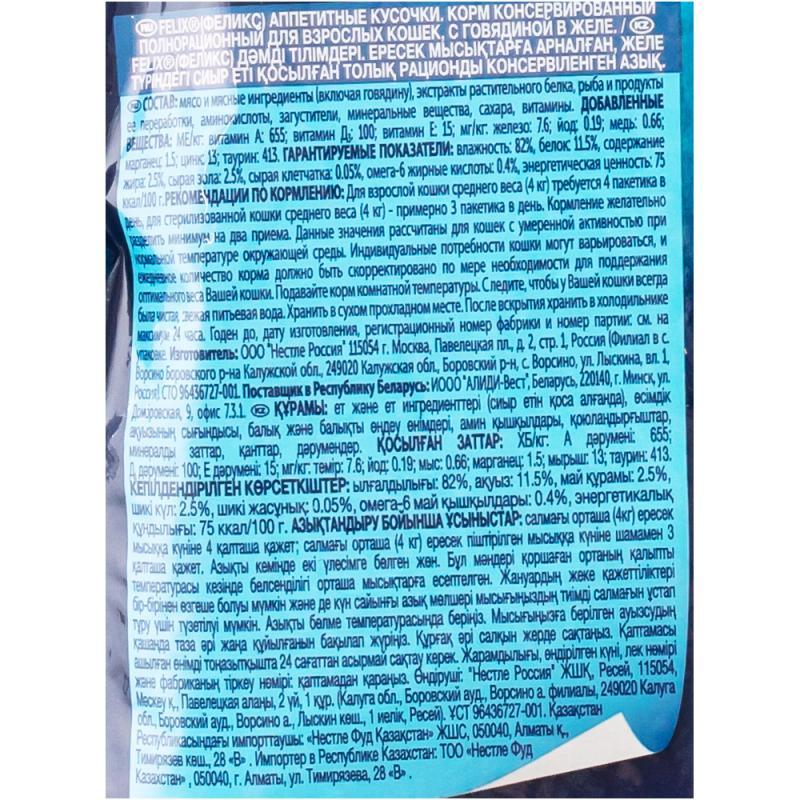 RU FELIX® (ФЕЛИКС) АППЕТИТНЫЕ КУСОЧКИ. КОРМ КОНСЕРВИРОВАННЫЙ
ПОЛНОРАЦИОННЫЙ ДЛЯ ВЗРОСЛЫХ КОШЕК, С ГОВЯДИНОЙ В ЖЕЛЕ. / KZ
FELIX® (ФЕЛИКС) ДӘМДІ ТІЛІМДЕРІ. ЕРЕСЕК МЫСЫҚТАРҒА АРНАЛҒАН, ЖЕЛЕ
ТҮРІНДЕГІ СИЫР ЕТІ ҚОСЫЛҒАН ТОЛЫҚ РАЦИОНДЫ КОНСЕРВІЛЕНГЕН АЗЫҚ.
RU СОСТАВ: мясо и мясные ингредиенты (включая говядину), экстракты растительного белка, рыба и продукты
ее переработки, аминокислоты, загустители, минеральные вещества, сахара, витамины. ДОБАВЛЕННЫЕ
ВЕЩЕСТВА: МЕ/кг: витамин А: 655; витамин Д₃: 100; витамин Е: 15; мг/кг: железо: 7.6; йод: 0.19; медь: 0.66;
марганец: 1.5; цинк: 13; таурин: 413. ГАРАНТИРУЕМЫЕ ПОКАЗАТЕЛИ: влажность: 82%, белок: 11.5%, содержание
жира: 2.5%, сырая зола: 2.5%, сырая клетчатка: 0.05%, омега-6 жирные кислоты: 0.4%, энергетическая ценность: 75
ккал/100 г. РЕКОМЕНДАЦИИ ПО КОРМЛЕНИЮ: Для взрослой кошки среднего веса (4 кг) требуется 4 пакетика в
день, для стерилизованной кошки среднего веса (4 кг) - примерно 3 пакетика в день. Кормление желательно
разделить минимум на два приема. Данные значения рассчитаны для кошек с умеренной активностью при
нормальной температуре окружающей среды. Индивидуальные потребности кошки могут варьироваться, и
ежедневное количество корма должно быть скорректировано по мере необходимости для поддержания
оптимального веса Вашей кошки. Подавайте корм комнатной температуры. Следите, чтобы у Вашей кошки всегда
была чистая, свежая питьевая вода. Хранить в сухом прохладном месте. После вскрытия хранить в холодильнике
максимум 24 часа. Годен до, дату изготовления, регистрационный номер фабрики и номер партии: см. на
упаковке. Изготовитель: ООО "Нестле Россия" 115054 г. Москва, Павелецкая пл., д. 2, стр. 1, Россия (Филиал в с.
Ворсино Боровского р-на Калужской обл., 249020 Калужская обл., Боровский р-н, с. Ворсино, ул. Лыскина, вл. 1,
Россия) СТО 96436727-001. Поставщик в Республику Беларусь: ИООО "АЛИДИ-Вест", Беларусь, 220140, г. Минск, ул.
Домбровская, 9, офис 7.3.1. KZ ҚҰРАМЫ: ет және ет ингредиенттері (сиыр етін қоса алғанда), өсімдік
ақуызының сығындысы, балық және балықты өңдеу өнімдері, амин қышқылдары, қоюландырғыштар,
минералды заттар, қанттар, дәрумендер. ҚОСЫЛҒАН ЗАТТАР: ХБ/кг: А дәрумені: 655;
Д₃ дәрумені: 100; Е дәрумені: 15; мг/кг: темір: 7.6; йод: 0.19; мыс: 0.66; марганец: 1.5; мырыш: 13; таурин: 413.
КЕПІЛДЕНДІРІЛГЕН КӨРСЕТКІШТЕР: ылғалдылығы: 82%, ақуыз: 11.5%, май құрамы: 2.5%,
шикі күл: 2.5%, шикі жасұнық: 0.05%, омега-6 май қышқылдары: 0.4%, энергетикалық
құндылығы: 75 ккал/100 г. АЗЫҚТАНДЫРУ БОЙЫНША ҰСЫНЫСТАР: салмағы орташа (4кг) ересек
мысыққа күніне 4 қалташа қажет; салмағы орташа (4 кг) ересек піштірілген мысыққа күніне шамамен 3
қалташа қажет. Азықты кемінде екі үлесімге бөлген жөн. Бұл мәндері қоршаған ортаның қалыпты
температурасы кезінде белсенділігі орташа мысықтарға есептелген. Жануардың жеке қажеттіліктері
бір-бірінен өзгеше болуы мүмкін және де күн сайынғы азық мөлшері мысығыңыздың тиімді салмағын ұстап
тұру үшін түзетілуі мүмкін. Азықты бөлме температурасында беріңіз. Мысығыңызға берілген ауызсудың
қашанда таза әрі жаңа құйылғанын бақылап жүріңіз. Құрғақ әрі салқын жерде сақтаңыз. Қаптамасы
ашылған өнімді тоңазытқышта 24 сағаттан асырмай сақтау керек. Жарамдылығы, өндірілген күні, лек нөмірі
және фабриканың тіркеу нөмірі: қаптамадан қараңыз. Өндіруші: "Нестле Россия" ЖШҚ, Ресей, 115054,
Мәскеу қ., Павелецкая алаңы, 2 үй, 1 құр. (Калуга обл., Боровский ауд., Ворсино а. филиалы, 249020 Калуга
обл., Боровский ауд., Ворсино а., Лыскин көш., 1 иелік, Ресей). ҰСТ 96436727-001. Қазақстан
Республикасындағы импорттаушы: «Нестле Фуд Қазақстан» ЖШС, 050040, Алматы қ.,
Тимирязев көш., 28 «В» . Импортер в Республике Казахстан: ТОО «Нестле Фуд
Казахстан» , 050040, г. Алматы, ул. Тимирязева, 28 «В» .